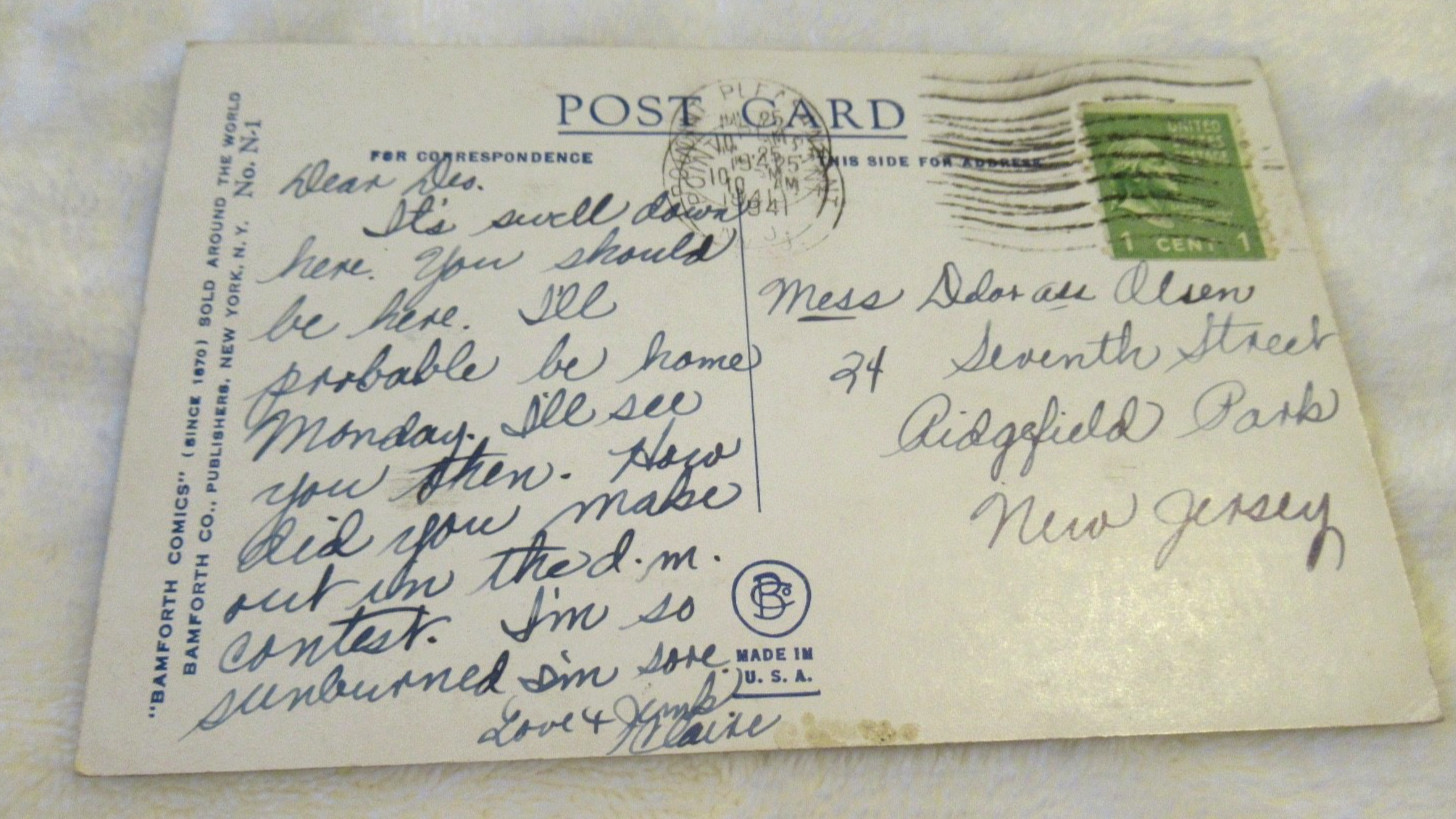 "BAMFORTH COMICS" (SINCE 1870) SOLD AROUND THE WORLD
BAMFORTH CO., PUBLISHERS, NEW YORK, N. Y. No. N-1
POST CARD
FOR CORRESPONDENCE
THIS SIDE FOR ADDRESS
Dear Des.
It's swell down
here. You should
be here. I'll
probable be home
Monday. I'll see
you then. How
did you make
out in the d.m.
contest. I'm so
sunburned I'm sore.
Love &
Claire
POINT PLEASANT
25
10 AM
1941
N. J.
UNITED
STATES
1 CENT 1
Miss Olsen
24 Seventh Street
Ridgefield Park
New Jersey
BCo
MADE IN
U. S. A.